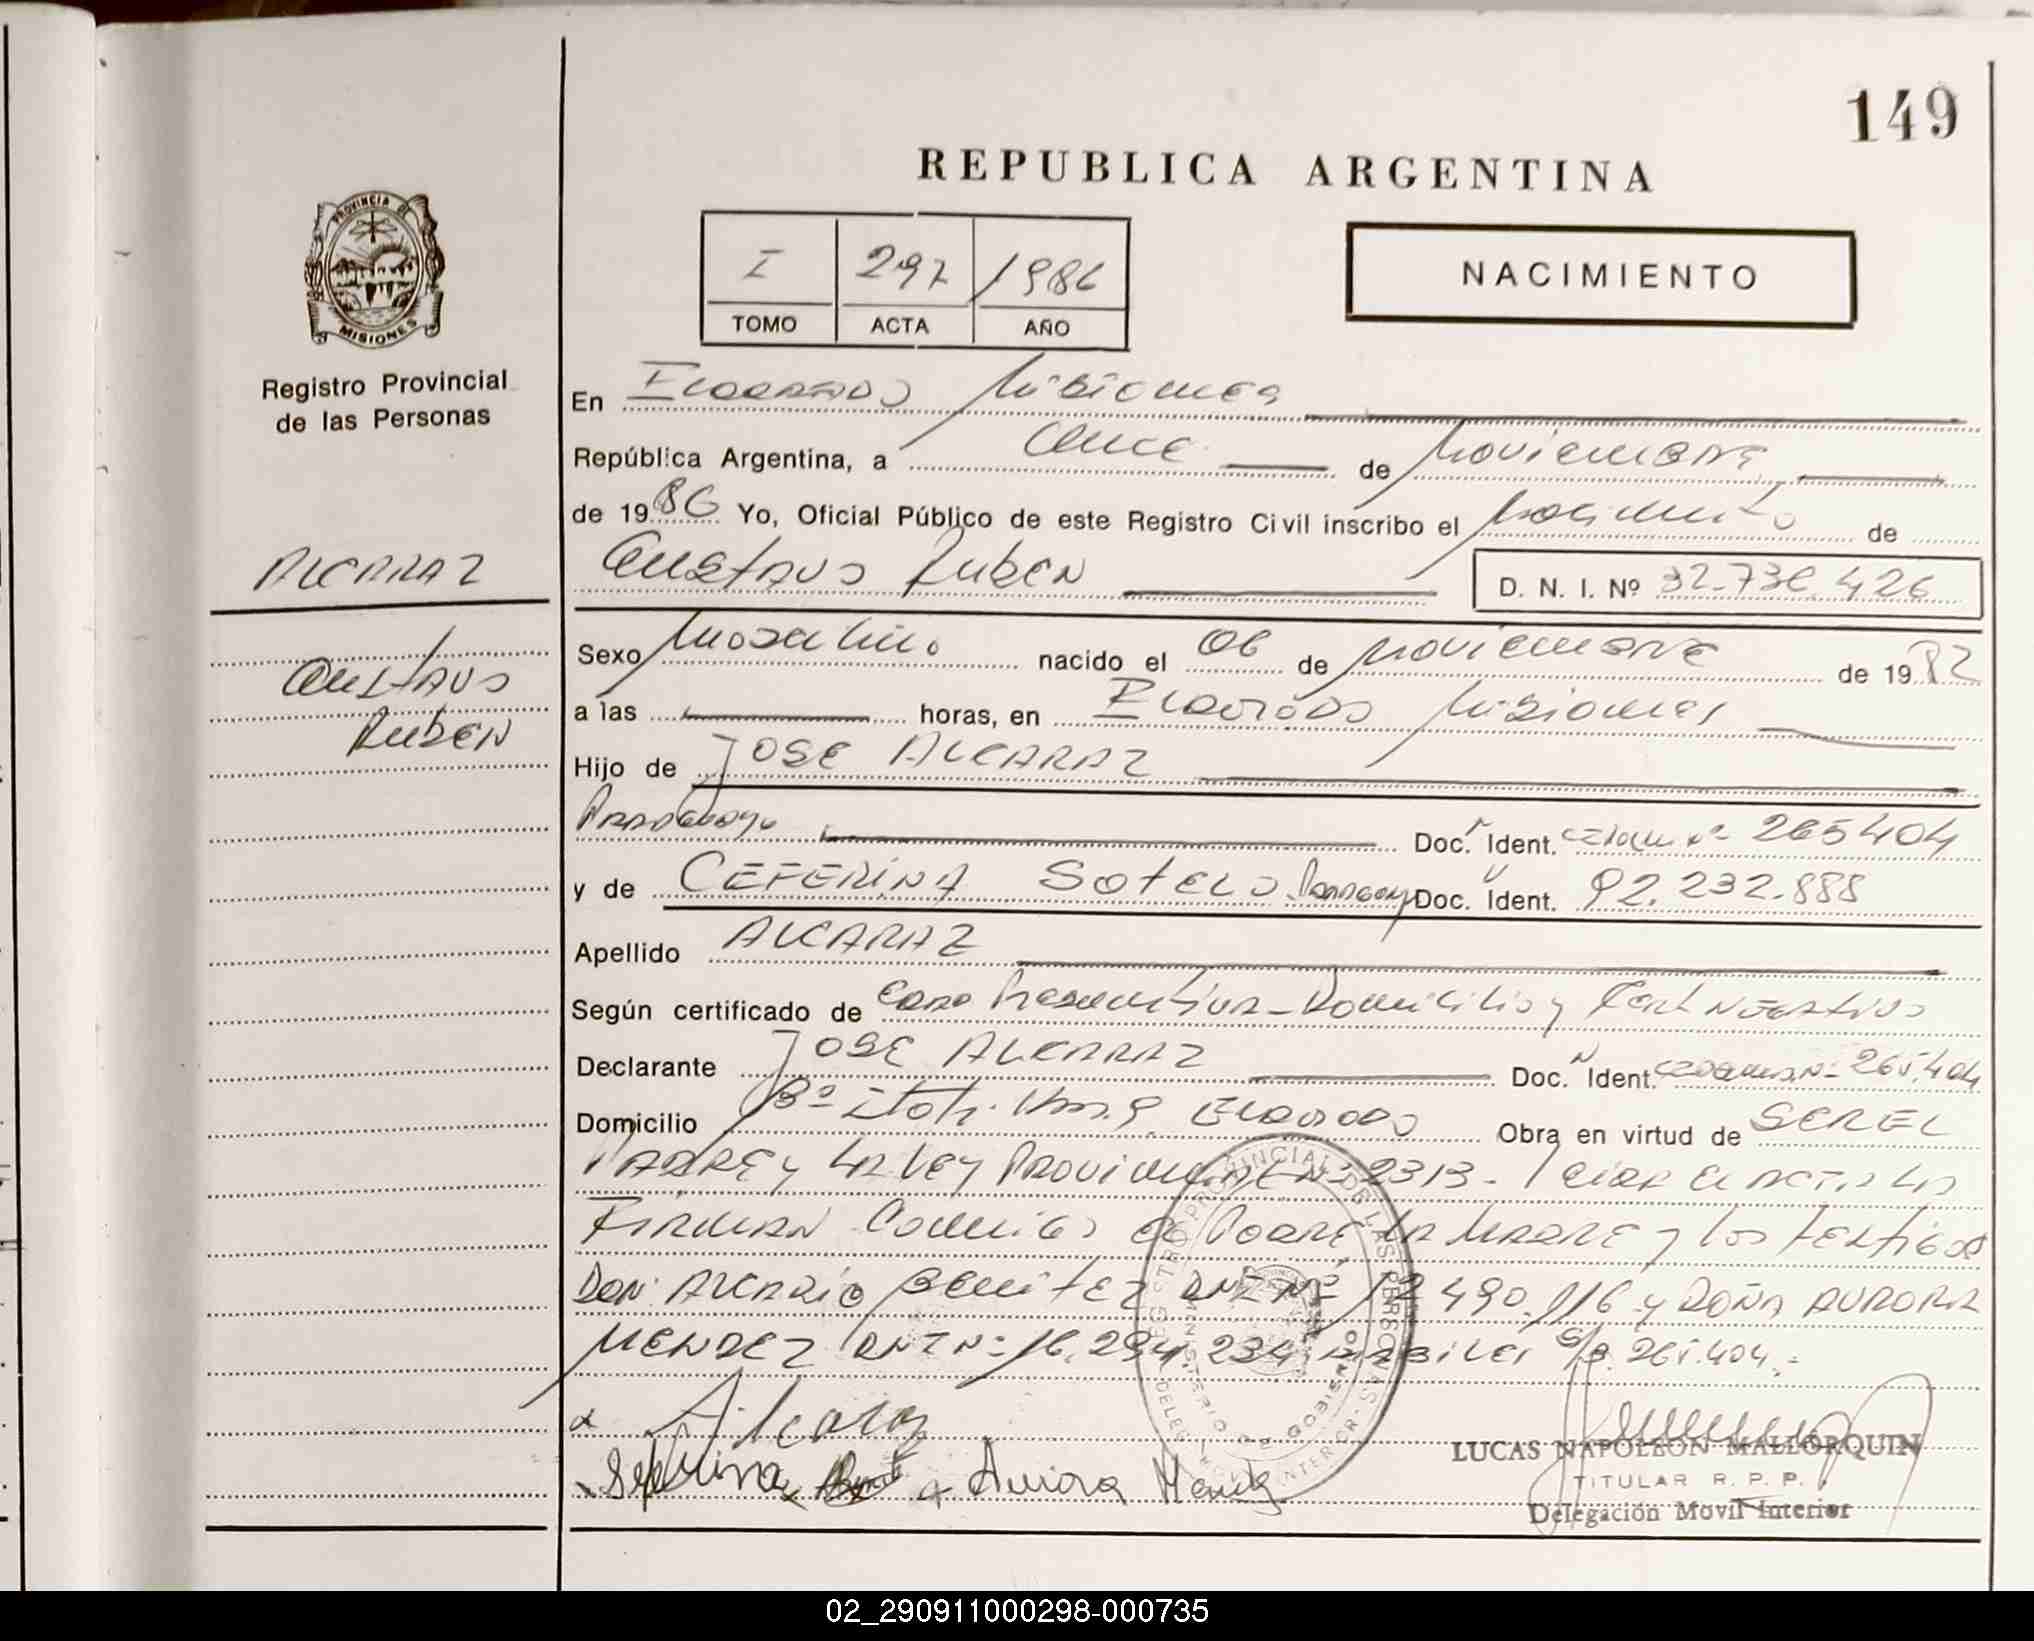 149
REPUBLICA ARGENTINA
I 297 1986
TOMO ACTA AÑO
NACIMIENTO
PROVINCIA DE
MISIONES
Registro Provincial
de las Personas
ALCARAZ
GUSTAVO
RUBEN
En ELDORADO Misiones
República Argentina, a once de Noviembre
de 1986 Yo, Oficial Público de este Registro Civil inscribo el Nacimiento de
GUSTAVO RUBEN D. N. I. Nº 32.736.426
Sexo Masculino nacido el 06 de Noviembre de 1982
a las horas, en Eldorado Misiones
Hijo de JOSE ALCARAZ
Paraguayo Doc. Ident. cedula Nº 265404
y de CEFERINA SOTELO Paraguaya Doc. Ident. 92.232.888
Apellido ALCARAZ
Según certificado de Edad Presuntiva - Domicilio y Cert Negativo
Declarante JOSE ALCARAZ Doc. Ident. cedula Nº 265.404
Domicilio Bº Eldorado Obra en virtud de SER EL
PADRE y LA LEY PROVINCIAL Nº 2313. Leida el acta la
FIRMAN conmigo el Padre LA MADRE y los testigos
Don Benitez DNI Nº 12.490.116 y DOÑA AURORA
MENDEZ DNI Nº 16.294.234 HABILES S/B. 265.404.-
Alcaraz
Aurora Mendez
REGISTRO PROVINCIAL DE LAS PERSONAS
MINISTERIO DE GOBIERNO
LUCAS NAPOLEON MALLORQUIN
TITULAR R. P. P.
Delegación Movil Interior
02_290911000298-000735